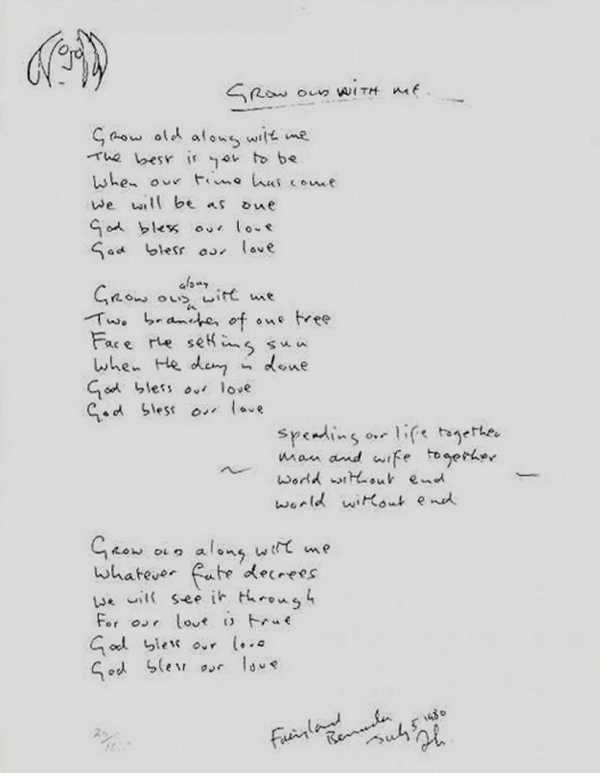 GROW OLD WITH ME
Grow old along with me
The best is yet to be
When our time has come
We will be as one
God bless our love
God bless our love
Grow OLD along with me
Two branches of one tree
Face the setting sun
When the day is done
God bless our love
God bless our love
spending our life together
man and wife together
world without end
world without end
Grow OLD along with me
Whatever fate decrees
we will see it through
For our love is true
God bless our love
God bless our love
Fairyland
Bermuda
July 5 1980